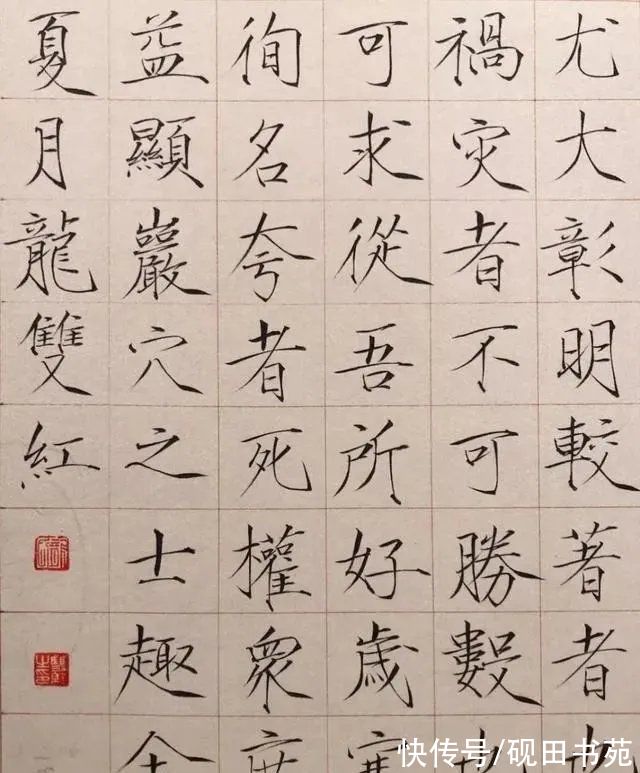 尤大彰明較著者
禍灾者不可勝數
可求從吾所好歲
徇名夸者死權眾
益顯巖穴之士趣
夏月龍雙紅
快传号/砚田书苑